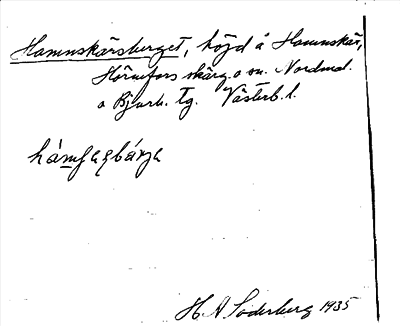 Hamnskärsberget, höjd å Hamnskär,
Hörnefors skärg. o sn. Nordmal.
o Bjurh. Tg. Västerb. l.
H. A. Söderberg 1935